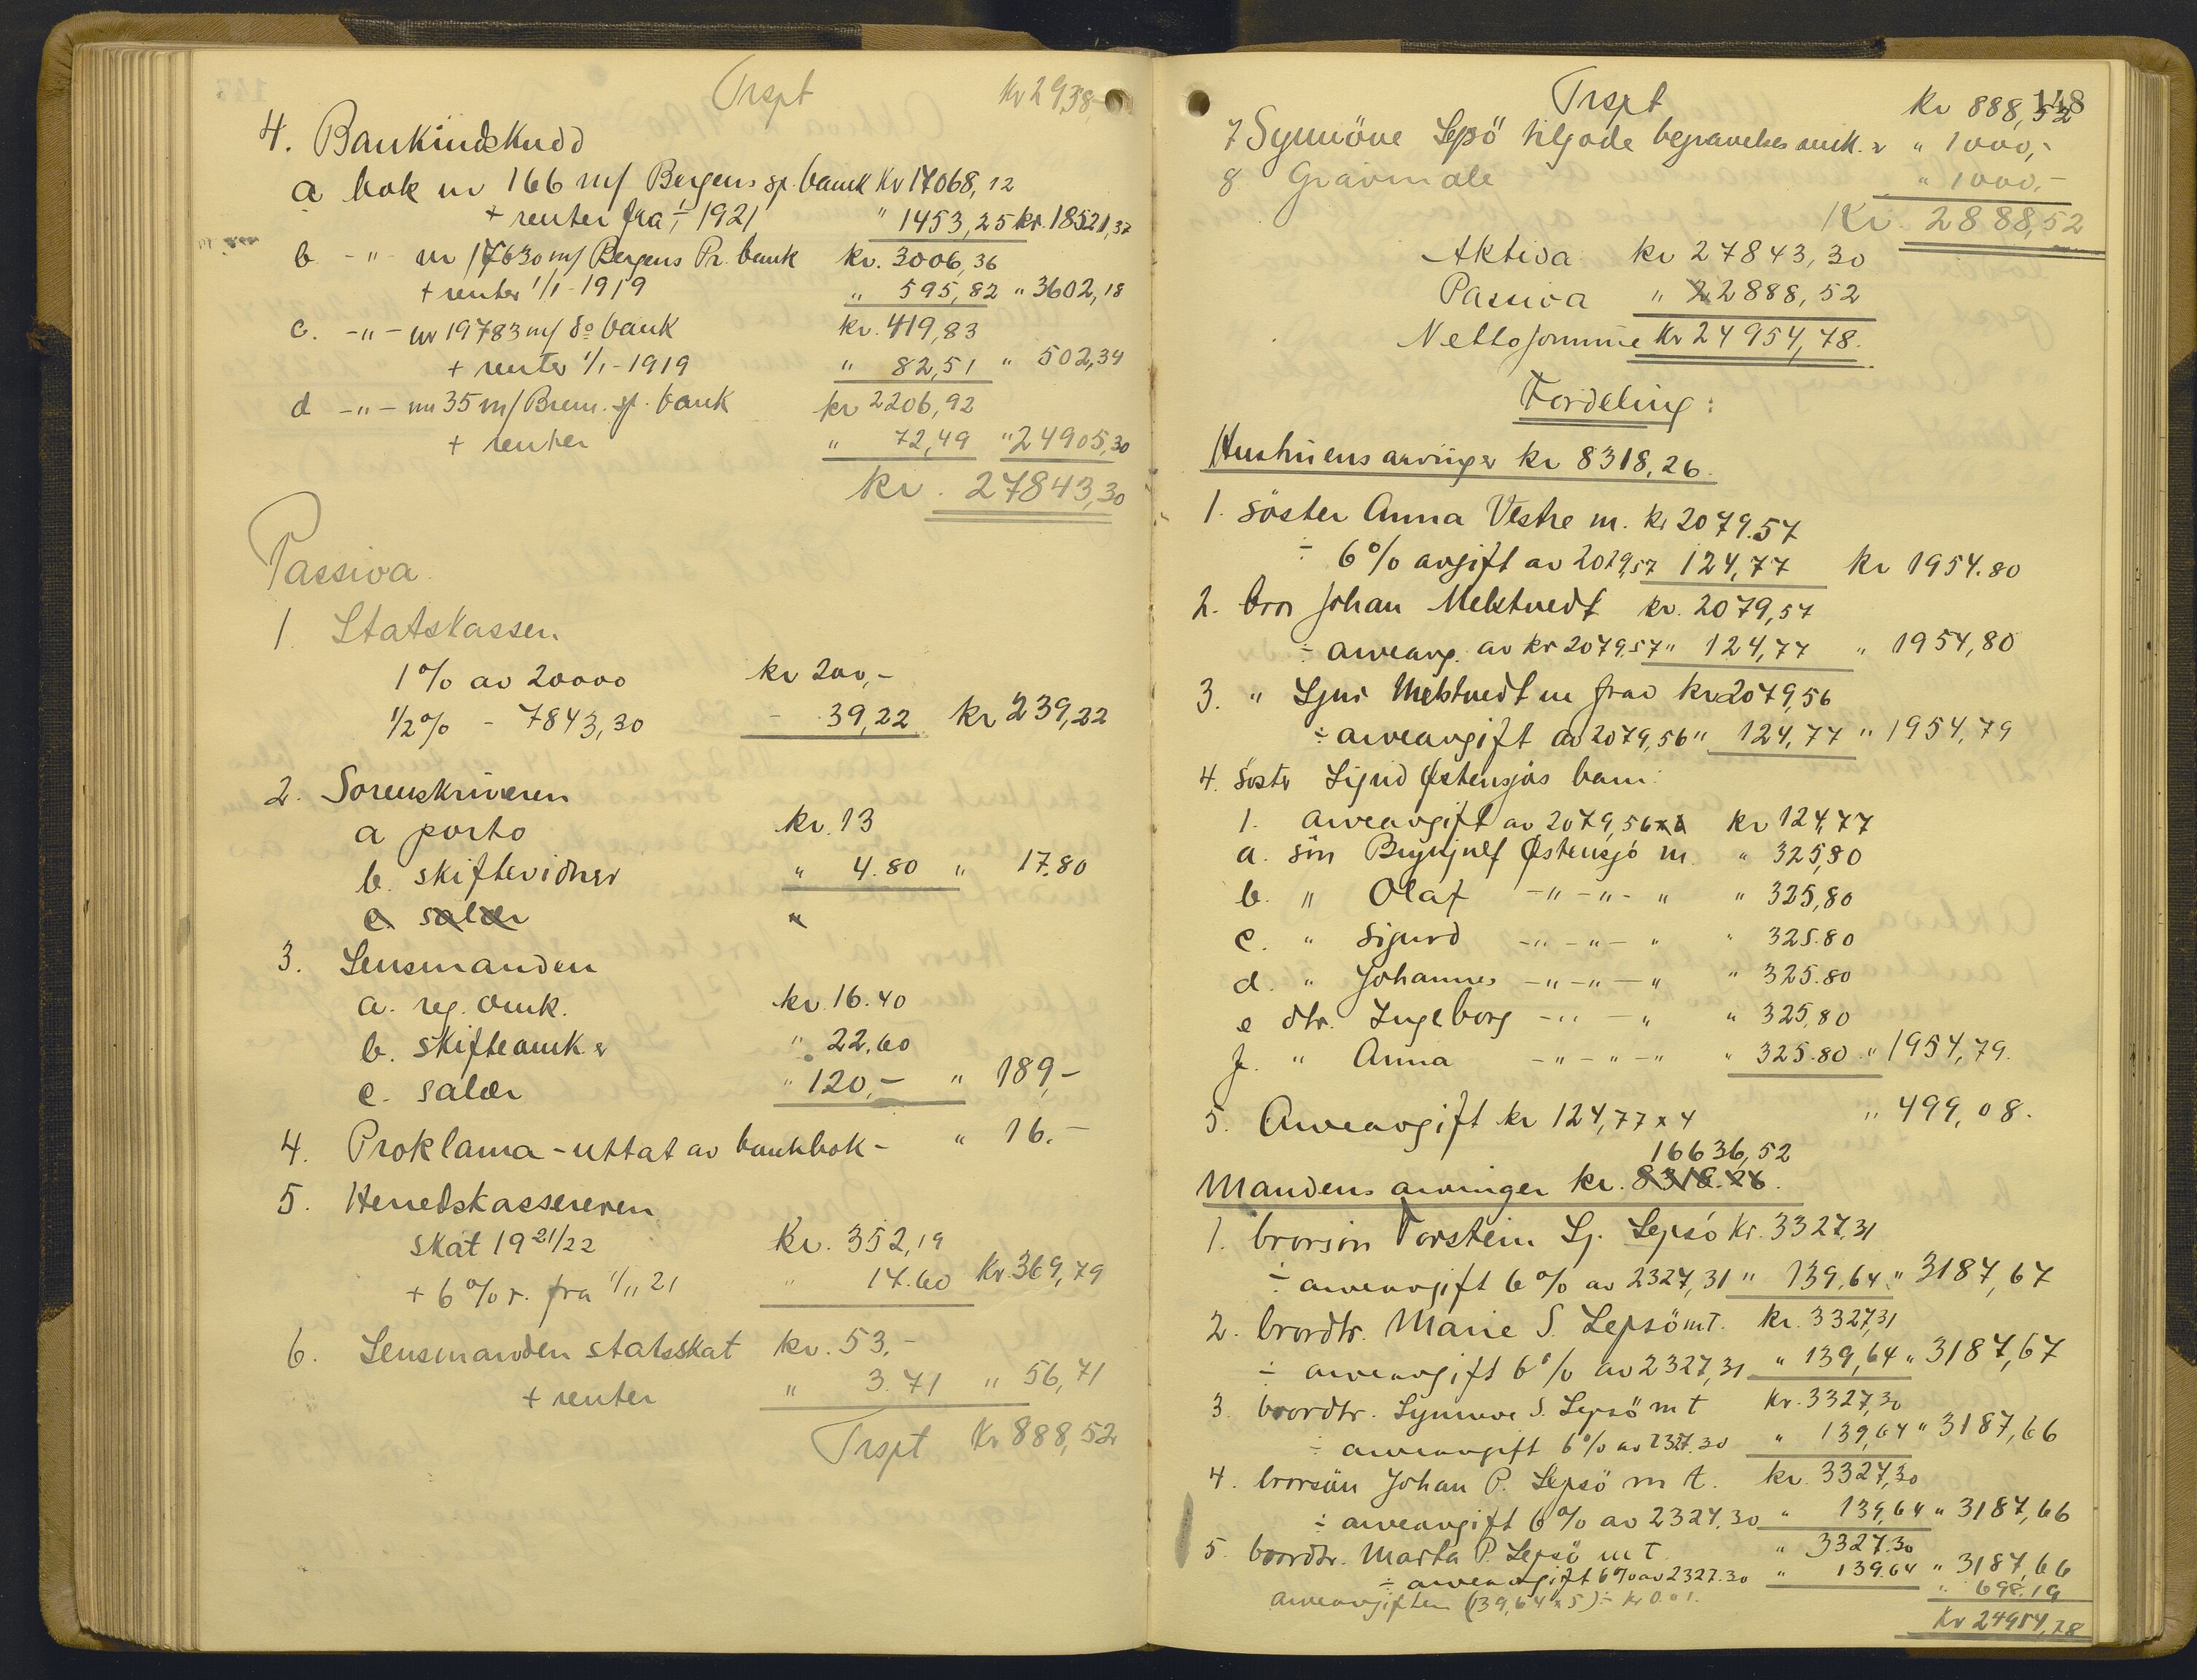 Trspt Kr 2938,-
4. Bankindskudd
a bok nr 166 m/ Bergens sp. bank Kr 17068,12
+ renter fra 1/1 1921 " 1453,25 kr. 18521,37
b - " - nr 17630 m/ Bergens Pr. bank kr. 3006,36
+ renter 1/1 - 1919 " 595,82 " 3602,18
c. - " - nr 19783 m/ do bank kr. 419,83
+ renter 1/1 - 1919 " 82,51 " 502,34
d - " - nr 35 m/ Brem. sp. bank kr 2206,92
+ renter " 72,49 " 24905,30
kr. 27843,30
Passiva
1 Statskassen
1% av 20000 kr 200,-
1/2% - 7843,30 - 39,22 kr 239,22
2. Sorenskriveren
a porto kr. 13
b. skiftevidner " 4.80 " 17.80
c salær "
3. Lensmanden
a. reg. omk. kr. 16.40
b. skifteomk.r " 22.60
c. salær " 120,- " 189,-
4. Proklama - uttat av bankbok - " 16.-
5. Herredskassereren
skat 19 21/22 Kr. 352,19
+ 6% r. fra 1/11 21 " 17.60 Kr. 369,79
6. Lensmanden statsskat kr. 53,-
+ renter " 3.71 " 56,71
Trspt Kr 888,52
148
Trspt Kr 888,52
7 Synnöve Lepsö tilgode begravelses omk.r " 1000,-
8 Gravmæle " 1000.-
Kr. 2888,52
Aktiva kr 27843,30
Passiva " 2888,52
Nettoformue Kr 24954,78.
Fordeling:
Hustruens arvinger kr 8318,26.
1. søster Anna Vestre m. kr 2079.57
÷ 6% avgift av 2079,57 124,77 Kr 1954.80
2. bror Johan Melstvedt kr. 2079,57
÷ arveavg. av kr 2079.57 " 124,77 " 1954,80
3. " Ljus Melstvedt m frav kr 2079,56
÷ arveavgift av 2079,56 " 124,77 " 1954,79
4. søster Sigrid Østensjøs barn:
1. arveavgift av 2079,56 kr 124,77
a. sön Brynjulf Østensjö m. " 325,80
b. " Olaf - " - " - " " 325,80
c. " Sigurd - " - " - " " 325.80
d. " Johannes - " - " - " " 325.80
e dtr. Ingeborg - " - " " 325,80
f. " Anna - " - " - " " 325.80 " 1954,79.
5. Arveavgift kr 124,77 x 4 " 499,08.
16636,52
Mandens arvinger kr. 8318.26.
1. brorsön Torstein Sj. Lepsö Kr. 3327,31
÷ arveavgift 6% av 2327,31 " 139,64 " 3187,67
2. brordtr. Marie S. Lepsö m t. kr. 3327,31
÷ arveavgift 6% av 2327,31 " 139,64 " 3187,67
3. brordtr. Synnove S. Lepsö m t Kr. 3327,30
÷ arveavgift 6% av 2327.30 " 139,64 " 3187,66
4. brorsön Johan P. Lepsö m t. kr. 3327,30
÷ arveavgift 6% av 2327.30 " 139,64 " 3187,66
5. brordtr. Marta P. Lepsö m t " 3327.30
÷ arveavgift 6% av 2327.30 " 139.64 " 3187,66
arveavgiften (139,64 x 5) ÷ kr 0.01. " 698.19
Kr 24954,78